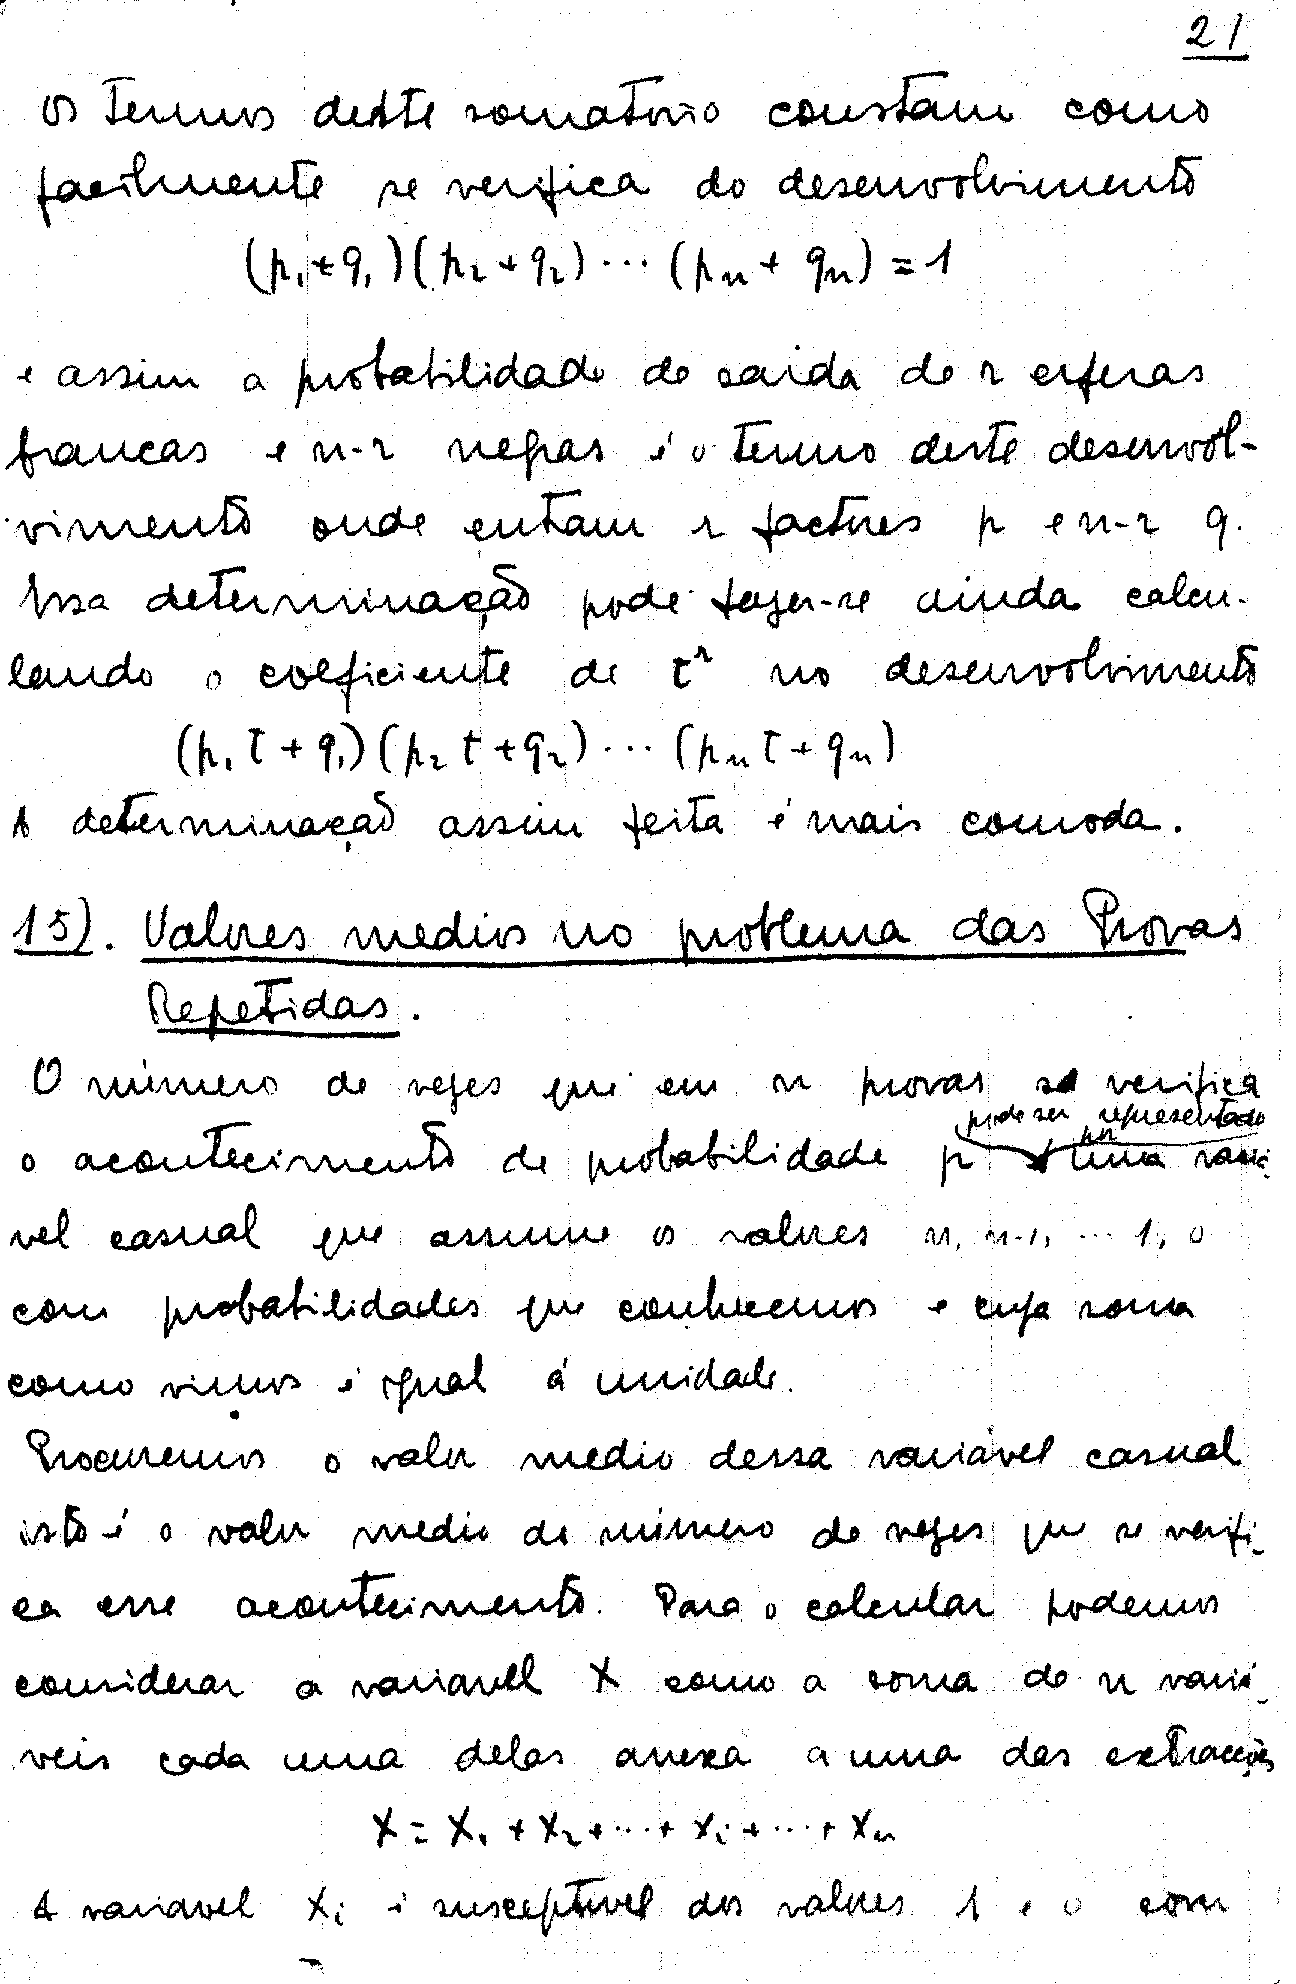 21
Os termos deste somatorio constam como
facilmente se verifica do desenvolvimento
(p₁+q₁)(p₂+q₂)···(pₙ+qₙ)=1
e assim a probabilidade de saída de r esferas
brancas e n-r negras é o termo deste desenvol-
vimento onde entram r factores p e n-r q.
Essa determinação pode fazer-se ainda calcu-
lando o coeficiente de tʳ no desenvolvimento
(p₁t+q₁)(p₂t+q₂)···(pₙt+qₙ)
A determinação assim feita é mais comoda.
15). Valores medios no problema das Provas
Repetidas.
O número de vezes que em n provas se verifica
pode ser representado
por
o acontecimento de probabilidade p uma variá-
vel casual que assume os valores n, n-1, ··· 1, 0
com probabilidades que conhecemos e cuja soma
como vimos é igual á unidade.
Procuremos o valor medio dessa variável casual
isto é o valor medio do número de vezes que se verifi-
ca esse acontecimento. Para o calcular podemos
considerar a variavel X como a soma de n variá-
veis cada uma delas anexa a uma das extracções
X = X₁ + X₂ + ··· + Xᵢ + ··· + Xₙ
A variavel Xᵢ é susceptivel dos valores 1 e 0 com